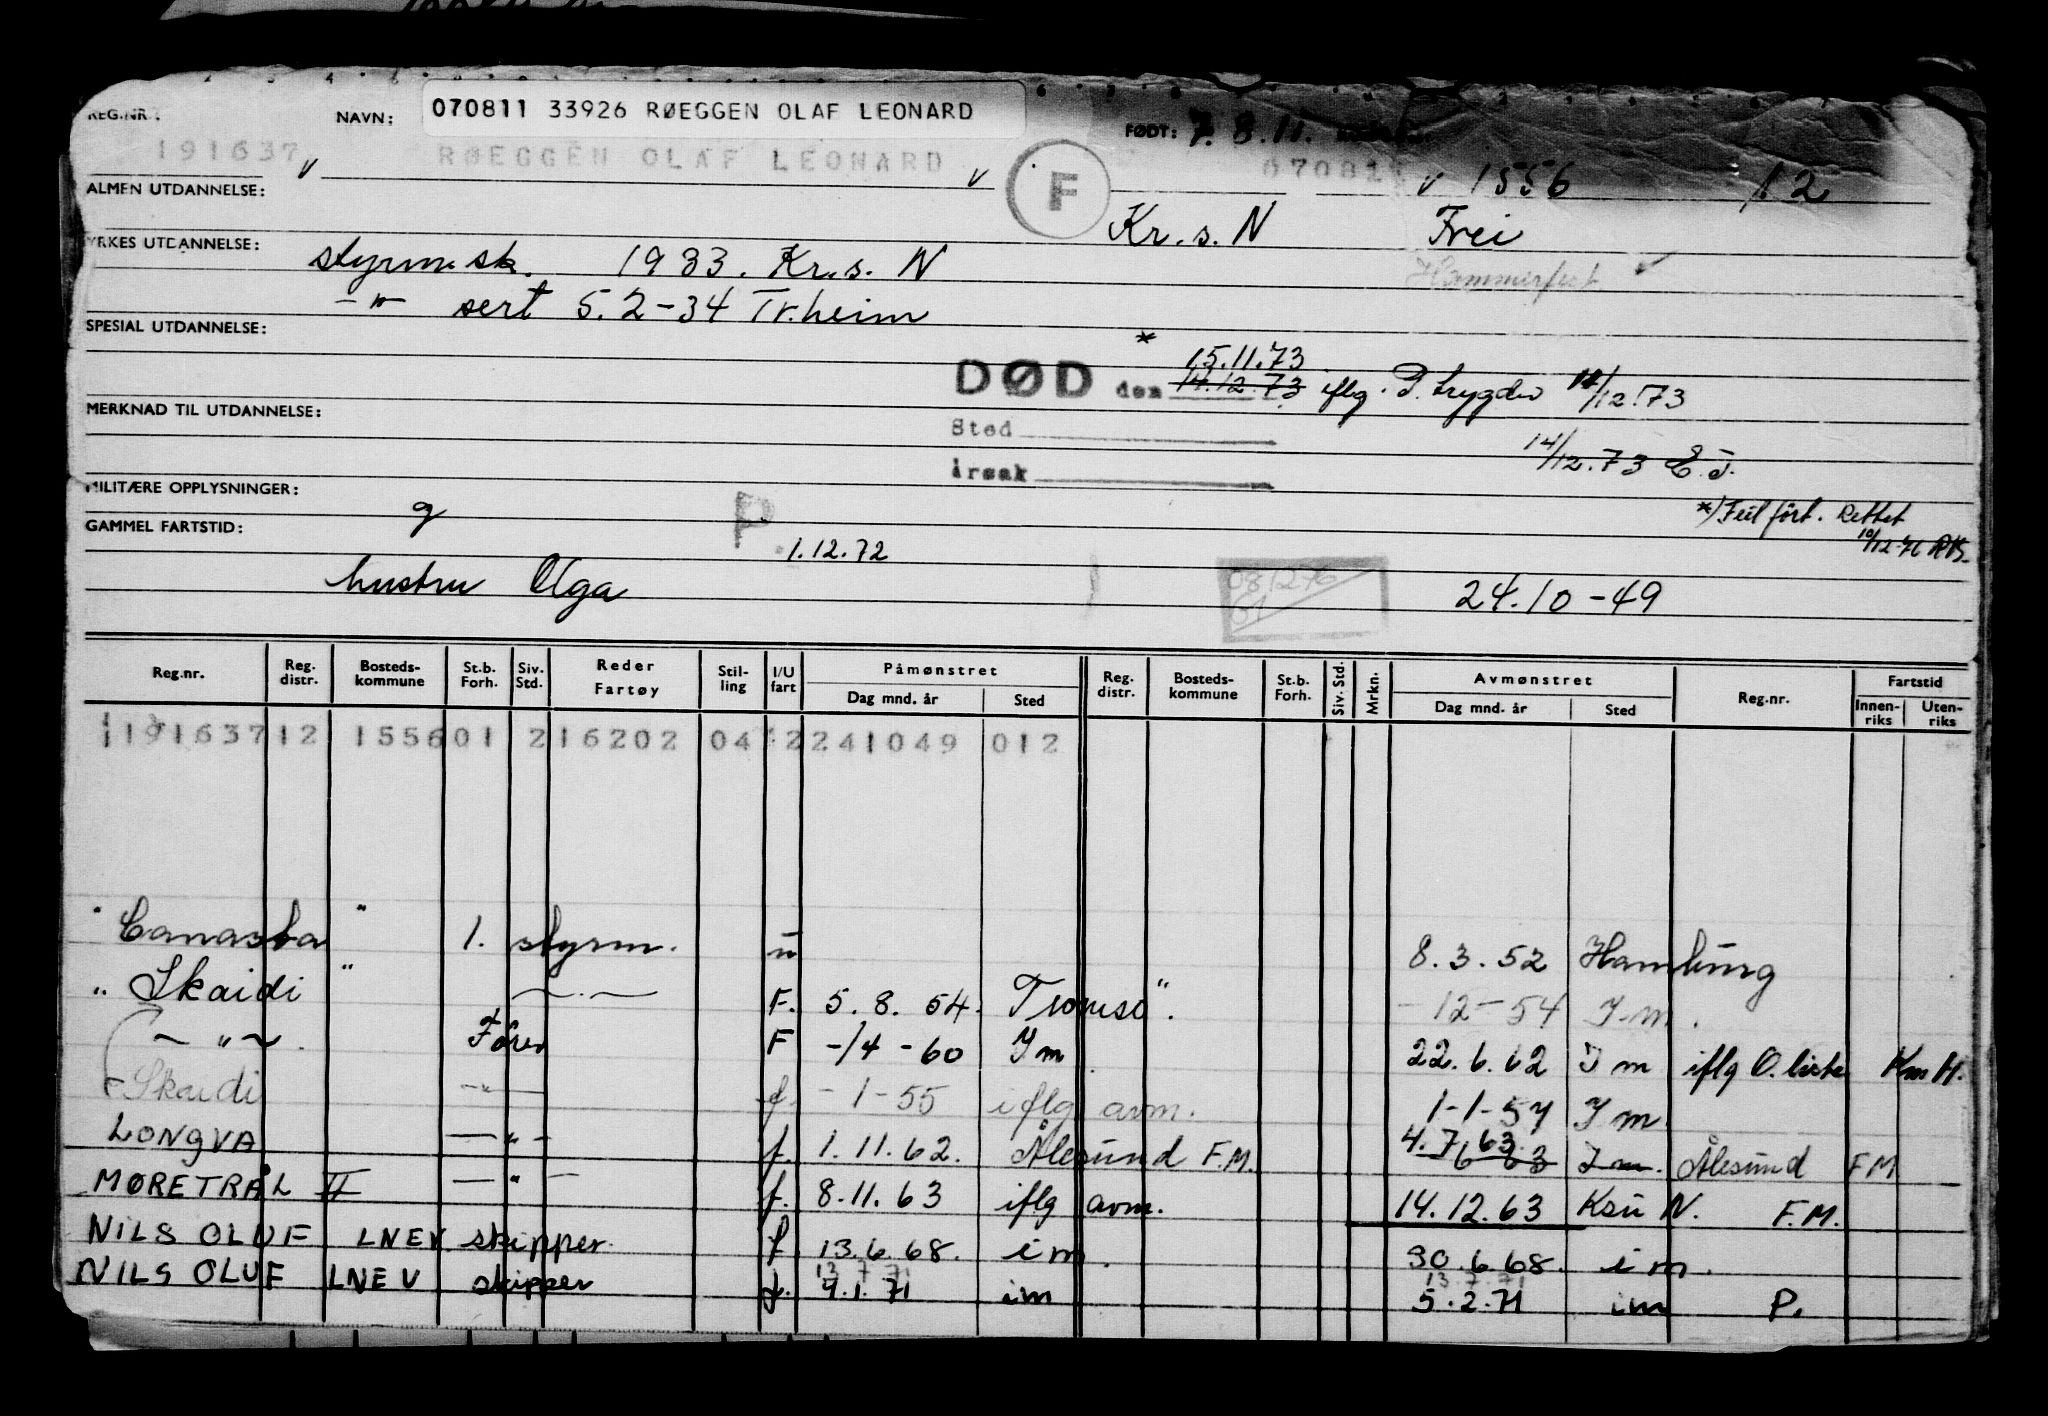 REG.NR.: NAVN: 070811 33926 RØEGGEN OLAF LEONARD FØDT: 7.8.11.
191637 v RØEGGEN OLAF LEONARD v F 070811 v 1556 12
ALMEN UTDANNELSE:
Kr.s.N Frei
YRKES UTDANNELSE: styrm.sk. 1933. Kr.s. N Hammerfest
-"- sert 5.2-34 Tr.heim
SPESIAL UTDANNELSE:
* 15.11.73
DØD den 14.12.73 iflg. P. trygdev 14/12.73
MERKNAD TIL UTDANNELSE:
Sted 14/12.73 E.J.
årsak
MILITÆRE OPPLYSNINGER: g P *) Feil ført. Rettet
GAMMEL FARTSTID: 1.12.72 10/12.76
hustru Olga 081276 01 24.10-49
Reg.nr. Reg. distr. Bosteds-kommune St.b. Forh. Siv. Std. Reder Fartøy Stil-ling I/U fart Påmønstret Dag mnd. år Sted Reg. distr. Bosteds-kommune St.b. Forh. Siv. Std. Mrkn. Avmønstret Dag mnd. år Sted Reg.nr. Fartstid Innen-riks Uten-riks
191637 12 1556 01 2 16202 04 2 241049 012
" Canasta " 1. styrm. u 8.3.52 Hamburg
" Skaidi " -"- F. 5.8.54. Tromsø ". -12-54 Im.
-"- Fører F -/4-60 Im 22.6.62 Im iflg O.liste Km H.
Skaidi -"- f. -1-55 iflg avm. 1-1-57 Im
LONGVA -"- f. 1.11.62. Ålesund F.M. 4.7.63. 6 63 Im. Ålesund FM
MØRETRÅL II -"- f. 8.11.63 iflg avm. 14.12.63 Ksu N. F.M.
NILS OLUF LNEV skipper. f 13.6.68. im. 30.6.68. im.
13 7 71 13.7.71
NILS OLUF LNEV skipper f. 9.1.71 im 5.2.71 im P.